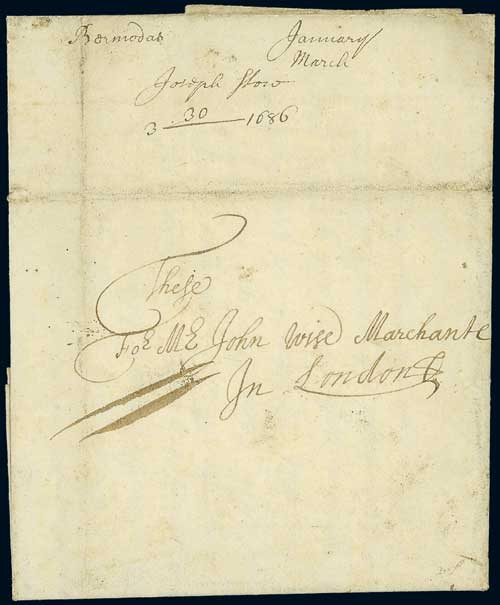 Bermodas
January
March
Joseph Stow
3 30 1686
These
For Mr John Wise Marchante
In London